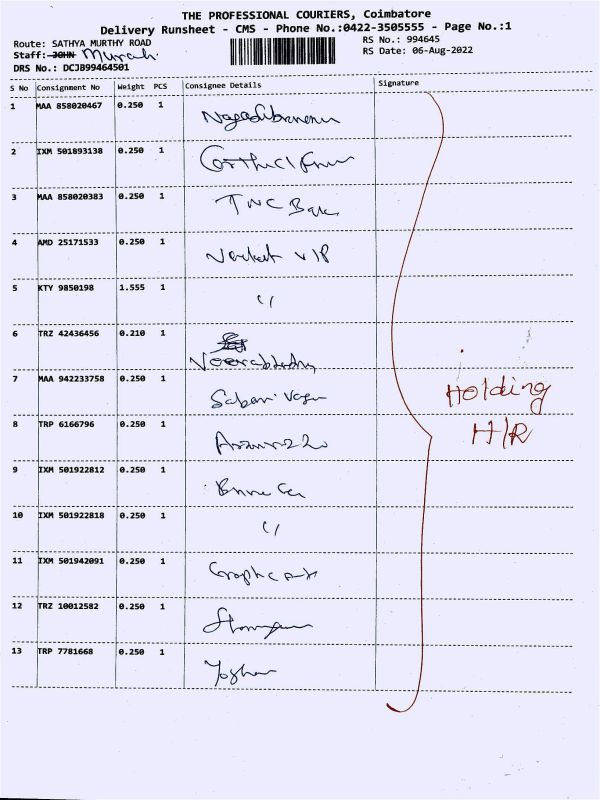 THE PROFESSIONAL COURIERS, Coimbatore
Delivery Runsheet - CMS - Phone No.:0422-3505555 - Page No.:1
Route: SATHYA MURTHY ROAD
RS No.: 994645
Staff: JOHN Murali
RS Date: 06-Aug-2022
DRS No.: DCJB99464501
S No Consignment No Weight PCS Consignee Details Signature
1 MAA 858020467 0.250 1
2 IXM 501893138 0.250 1
3 MAA 858020383 0.250 1 TNC
4 AMD 25171533 0.250 1 VIP
5 KTY 9850198 1.555 1 "
6 TRZ 42436456 0.210 1
7 MAA 942233758 0.250 1
8 TRP 6166796 0.250 1
9 IXM 501922812 0.250 1
10 IXM 501922818 0.250 1 "
11 IXM 501942091 0.250 1
12 TRZ 10012582 0.250 1
13 TRP 7781668 0.250 1
Holding
H/R